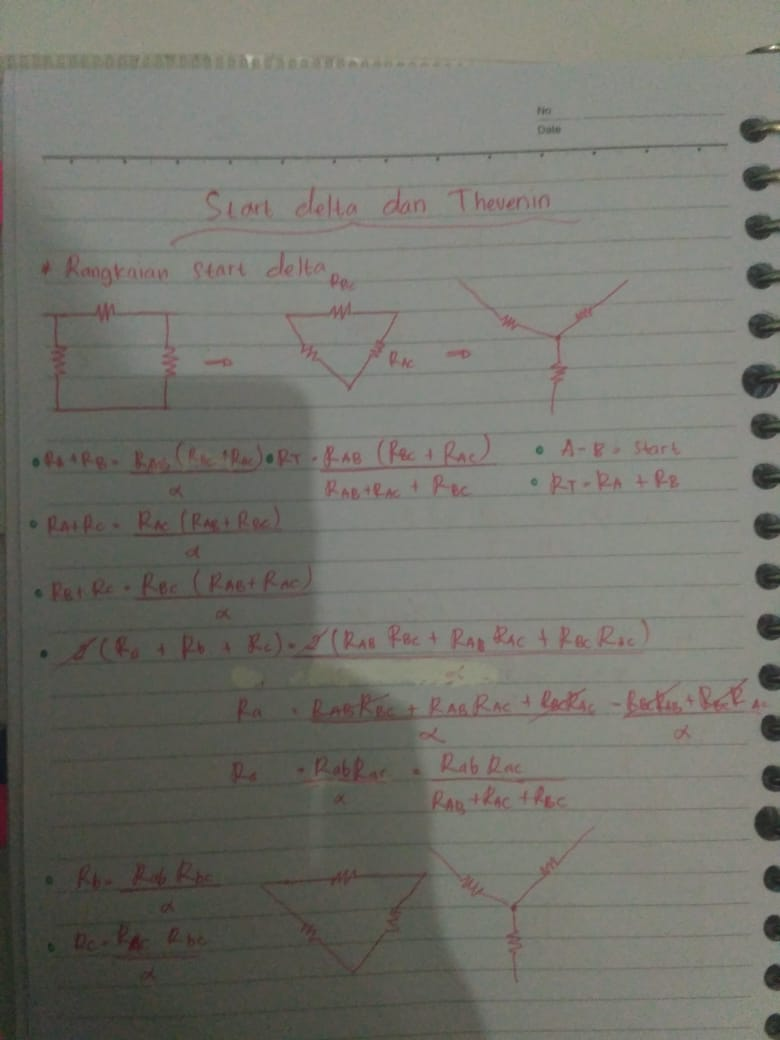 No
Date
Start delta dan Thevenin
* Rangkaian start delta
RBC
RAC
• RA + RB = RAB (RBC + RAC) / α • RT = RAB (RBC + RAC) / RAB + RAC + RBC • A - B = Start
• RT = RA + RB
• RA + RC = RAC (RAB + RBC) / α
• RB + RC = RBC (RAB + RAC) / α
• 2 (Ra + Rb + Rc) = 2 (RAB RBC + RAB RAC + RBC RAC) / α
Ra = RAB RBC + RAB RAC + RBC RAC / α - RBC RAB + RBC RAC / α
Ra = Rab Rac / α = Rab Rac / RAB + RAC + RBC
• Rb = Rab Rbc / α
• Rc = RAC Rbc / α